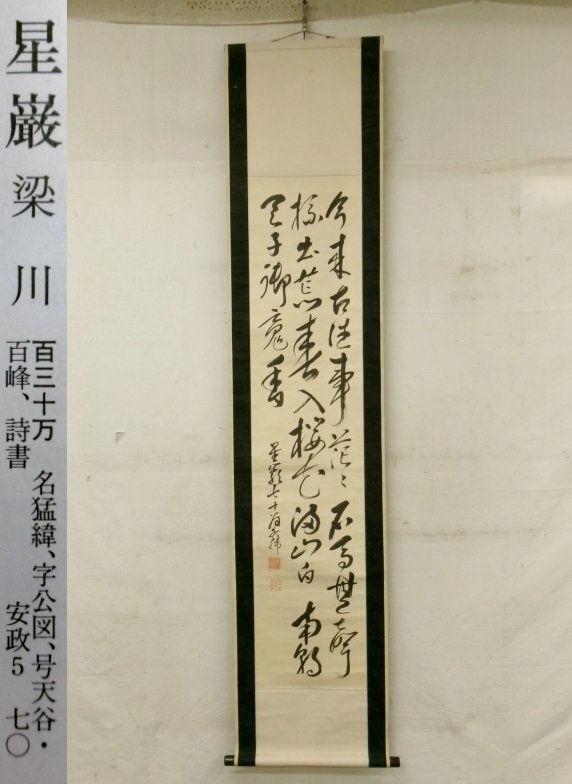 星巌
梁川
百三十万 名猛緯、字公図、号天谷・
百峰、詩書 安政5 七〇
今来古往事茫々石馬無声
抔土荒春入桜花満山白南朝
天子御魂香
星巌七十